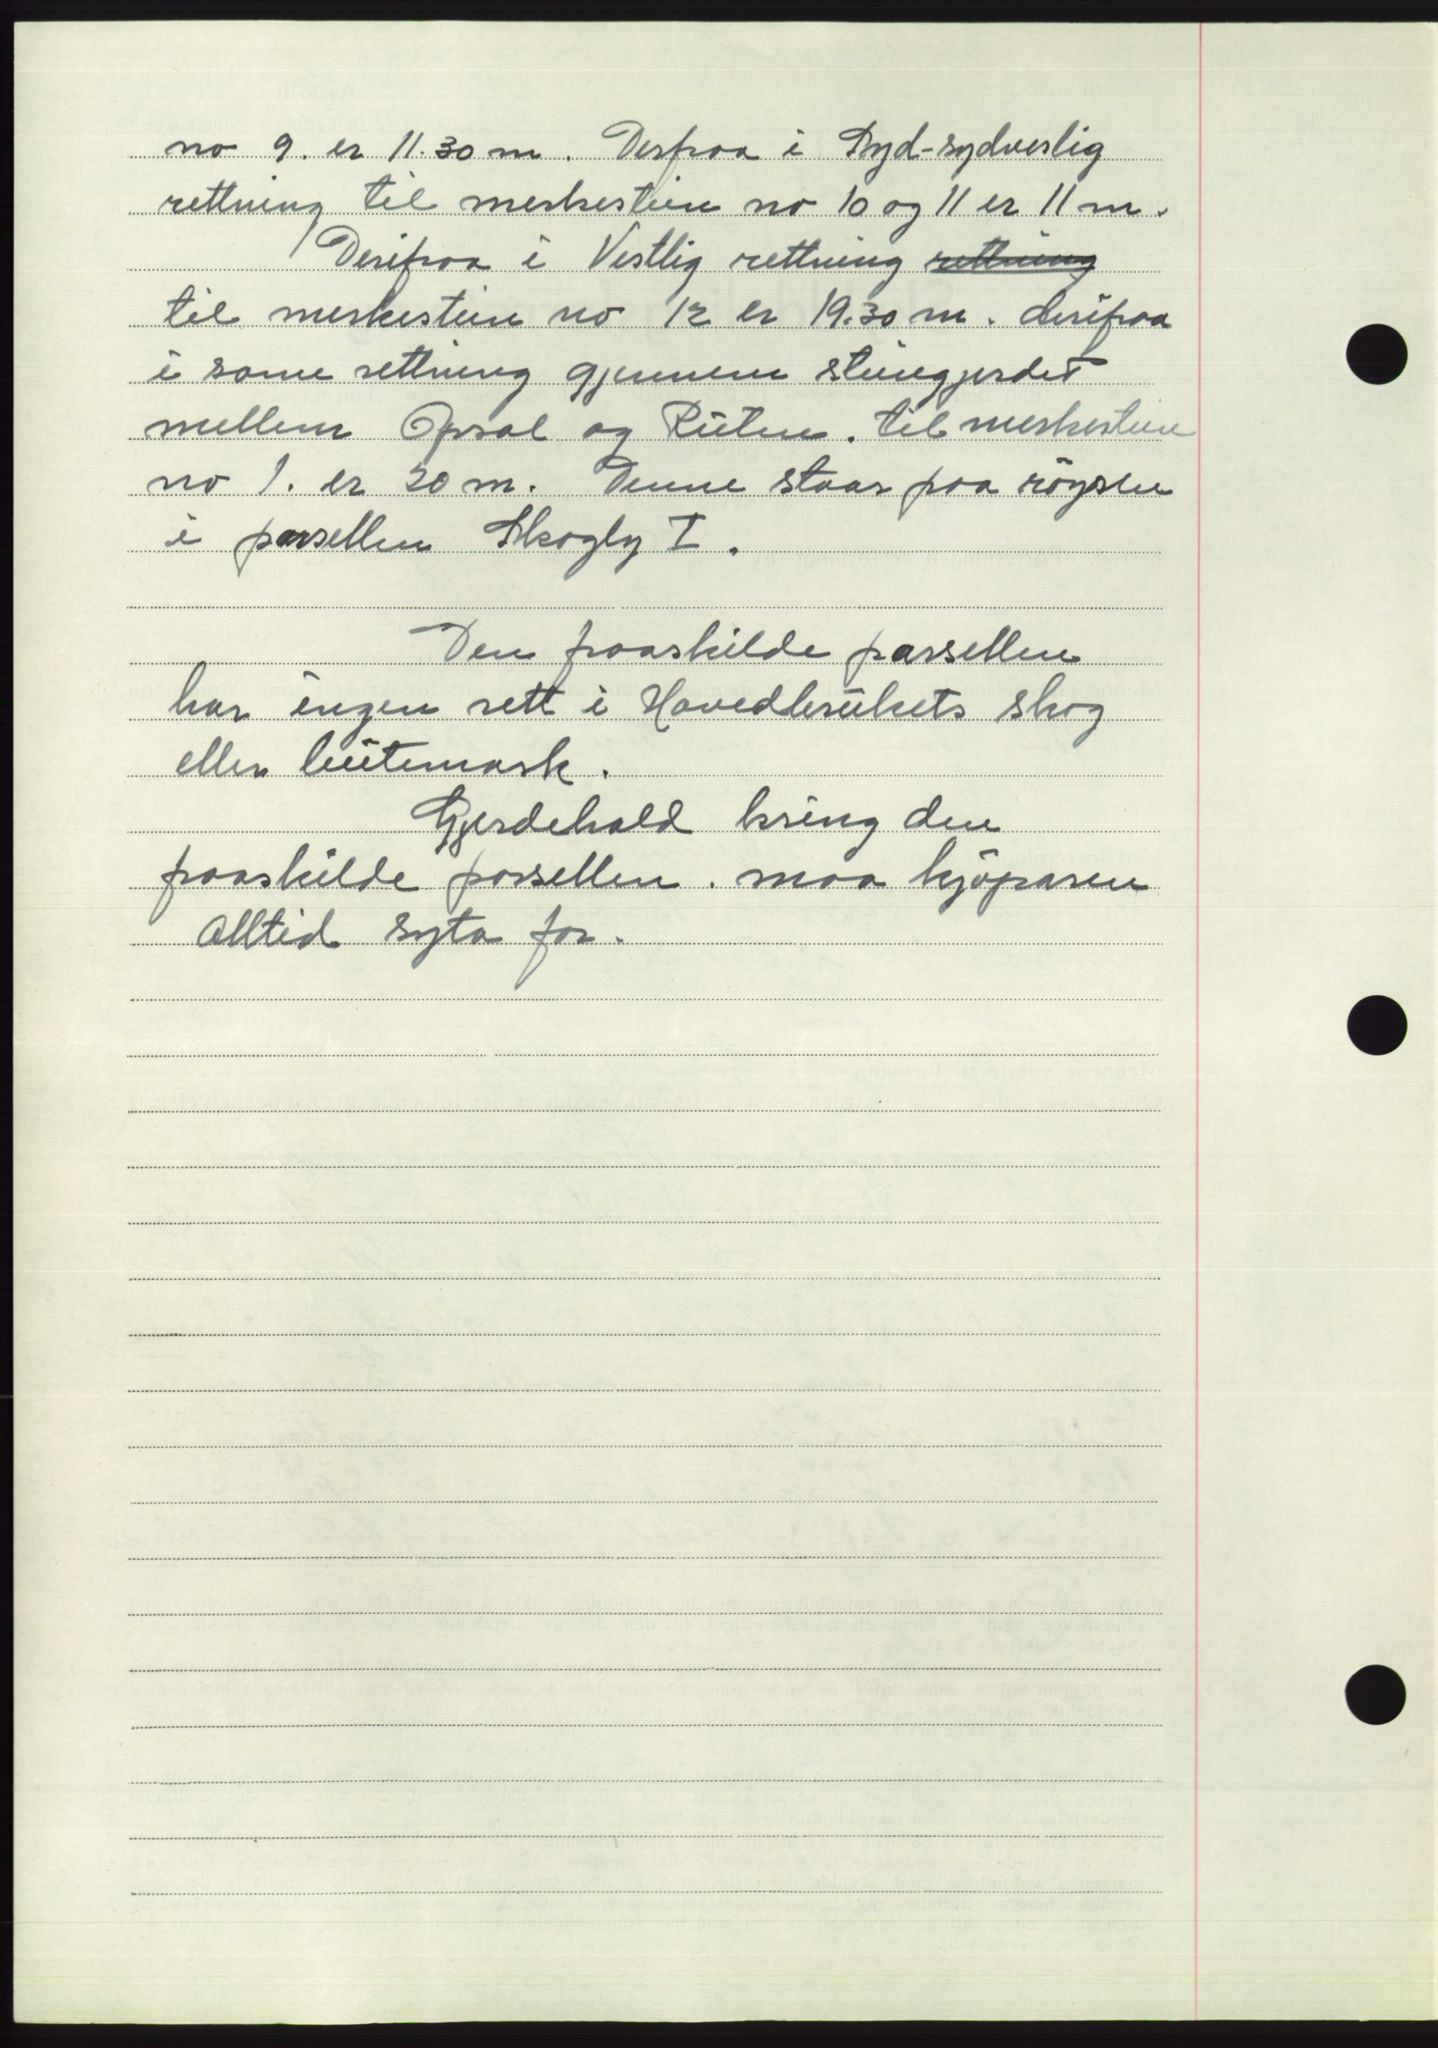 no 9. er 11.30 m. Derfraa i Syd-sydvestlig
rettning til merkestein no 10 og 11 er 11 m.
Derifraa i Vestlig rettning ~~rettning~~
til merkestein no 12 er 19.30 m. derifraa
i same rettning gjennem steingjerdet
mellem Opsal og Rüten. til merkestein
no 1. er 20 m. Denne staar paa röysen
i parsellen Skogly I.
Den fraaskilde parsellen
har ingen rett i Hovedbrükets skog
eller bütemark.
Gjerdehald kring den
fraaskilde parsellen. maa kjöparen
alltid syta for.